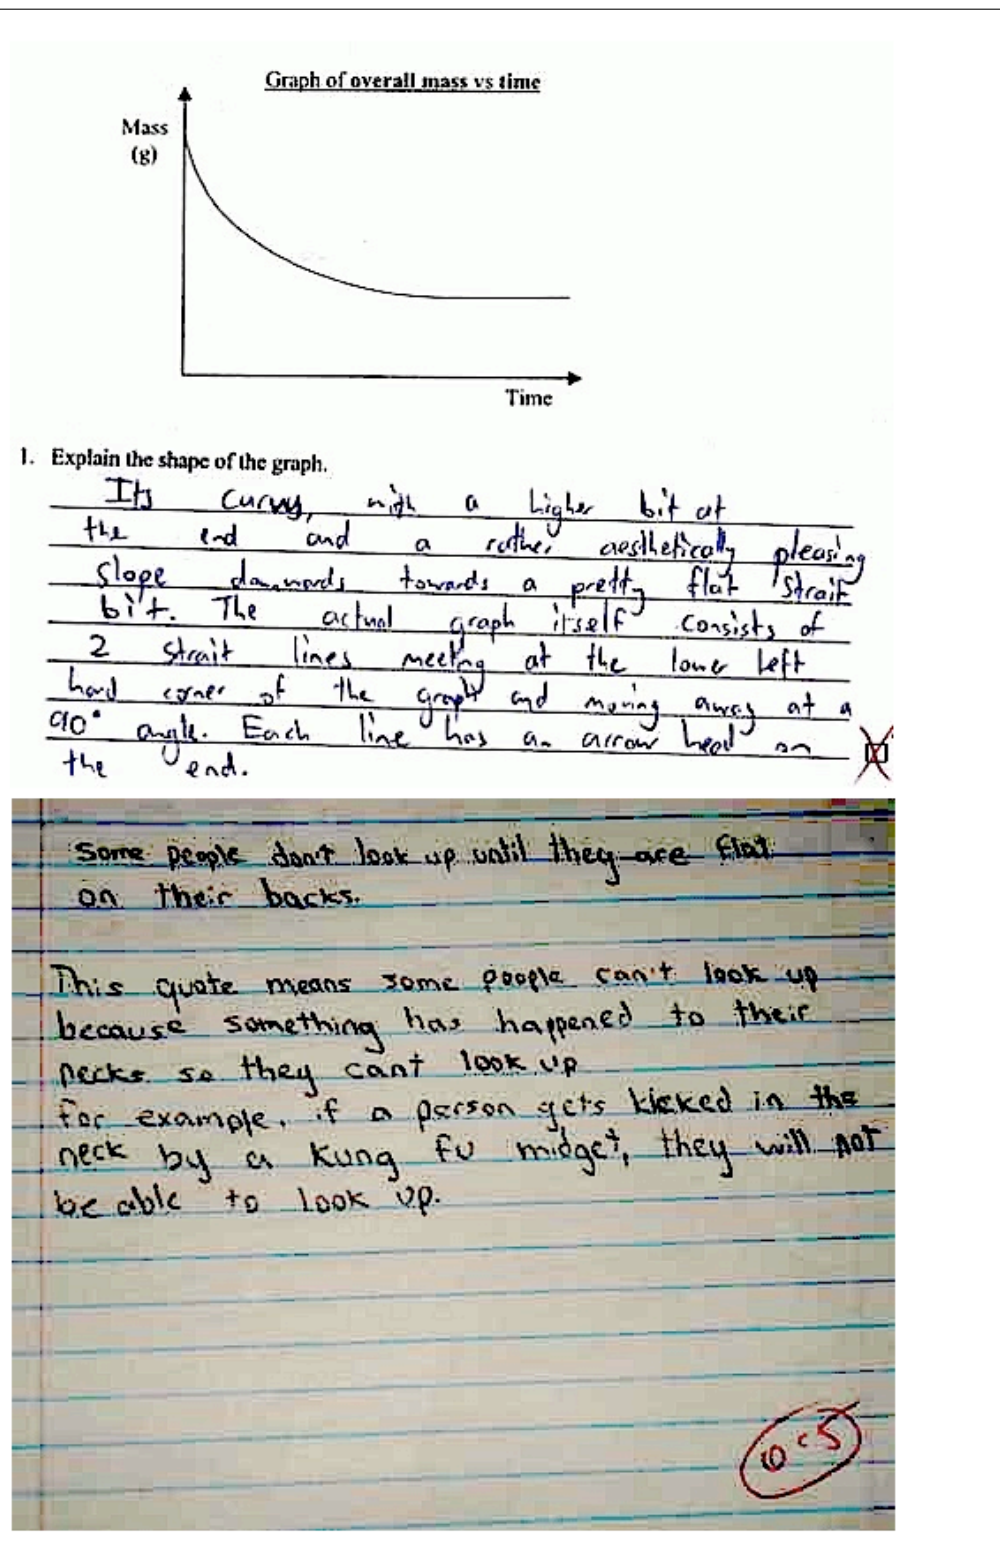 Graph of overall mass vs time
Mass
(g)
Time
1. Explain the shape of the graph.
Its curvy, with a higher bit at
the end and a rather aesthetically pleasing
slope downwards towards a pretty flat strait
bit. The actual graph itself consists of
2 strait lines meeting at the lower left
hand corner of the graph and moving away at a
90° angle. Each line has an arrow head on
the end.
Some people don't look up until they are flat
on their backs.
This quote means some people can't look up
because something has happened to their
necks so they cant look up
for example, if a person gets kicked in the
neck by a kung fu midget, they will not
be able to look up.